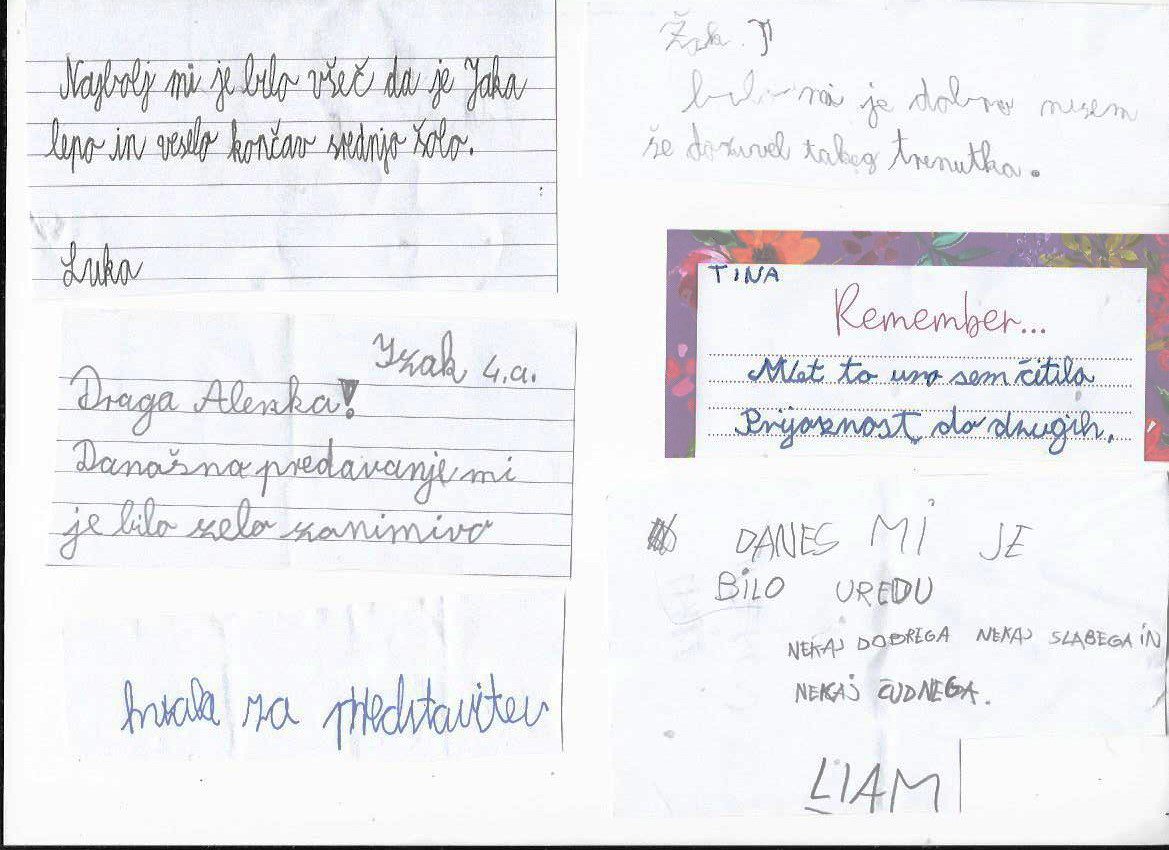 Najbolj mi je bilo všeč da je Jaka
lepo in veselo končav srednjo šolo.
Luka
Izak 4.a.
Draga Alenka!
Današna predavanje mi
je bilo zelo zanimivo
hvala za predstavitev
Žak
bilo mi je dobro nisem
še dožuvel takeg trenutka.
TINA
Remember...
to uro sem čitila
Prijaznost do drugih.
DANES MI JE
BILO UREDU
NEKAJ DOBREGA NEKAJ SLABEGA IN
NEKAJ ČUDNEGA.
LIAM